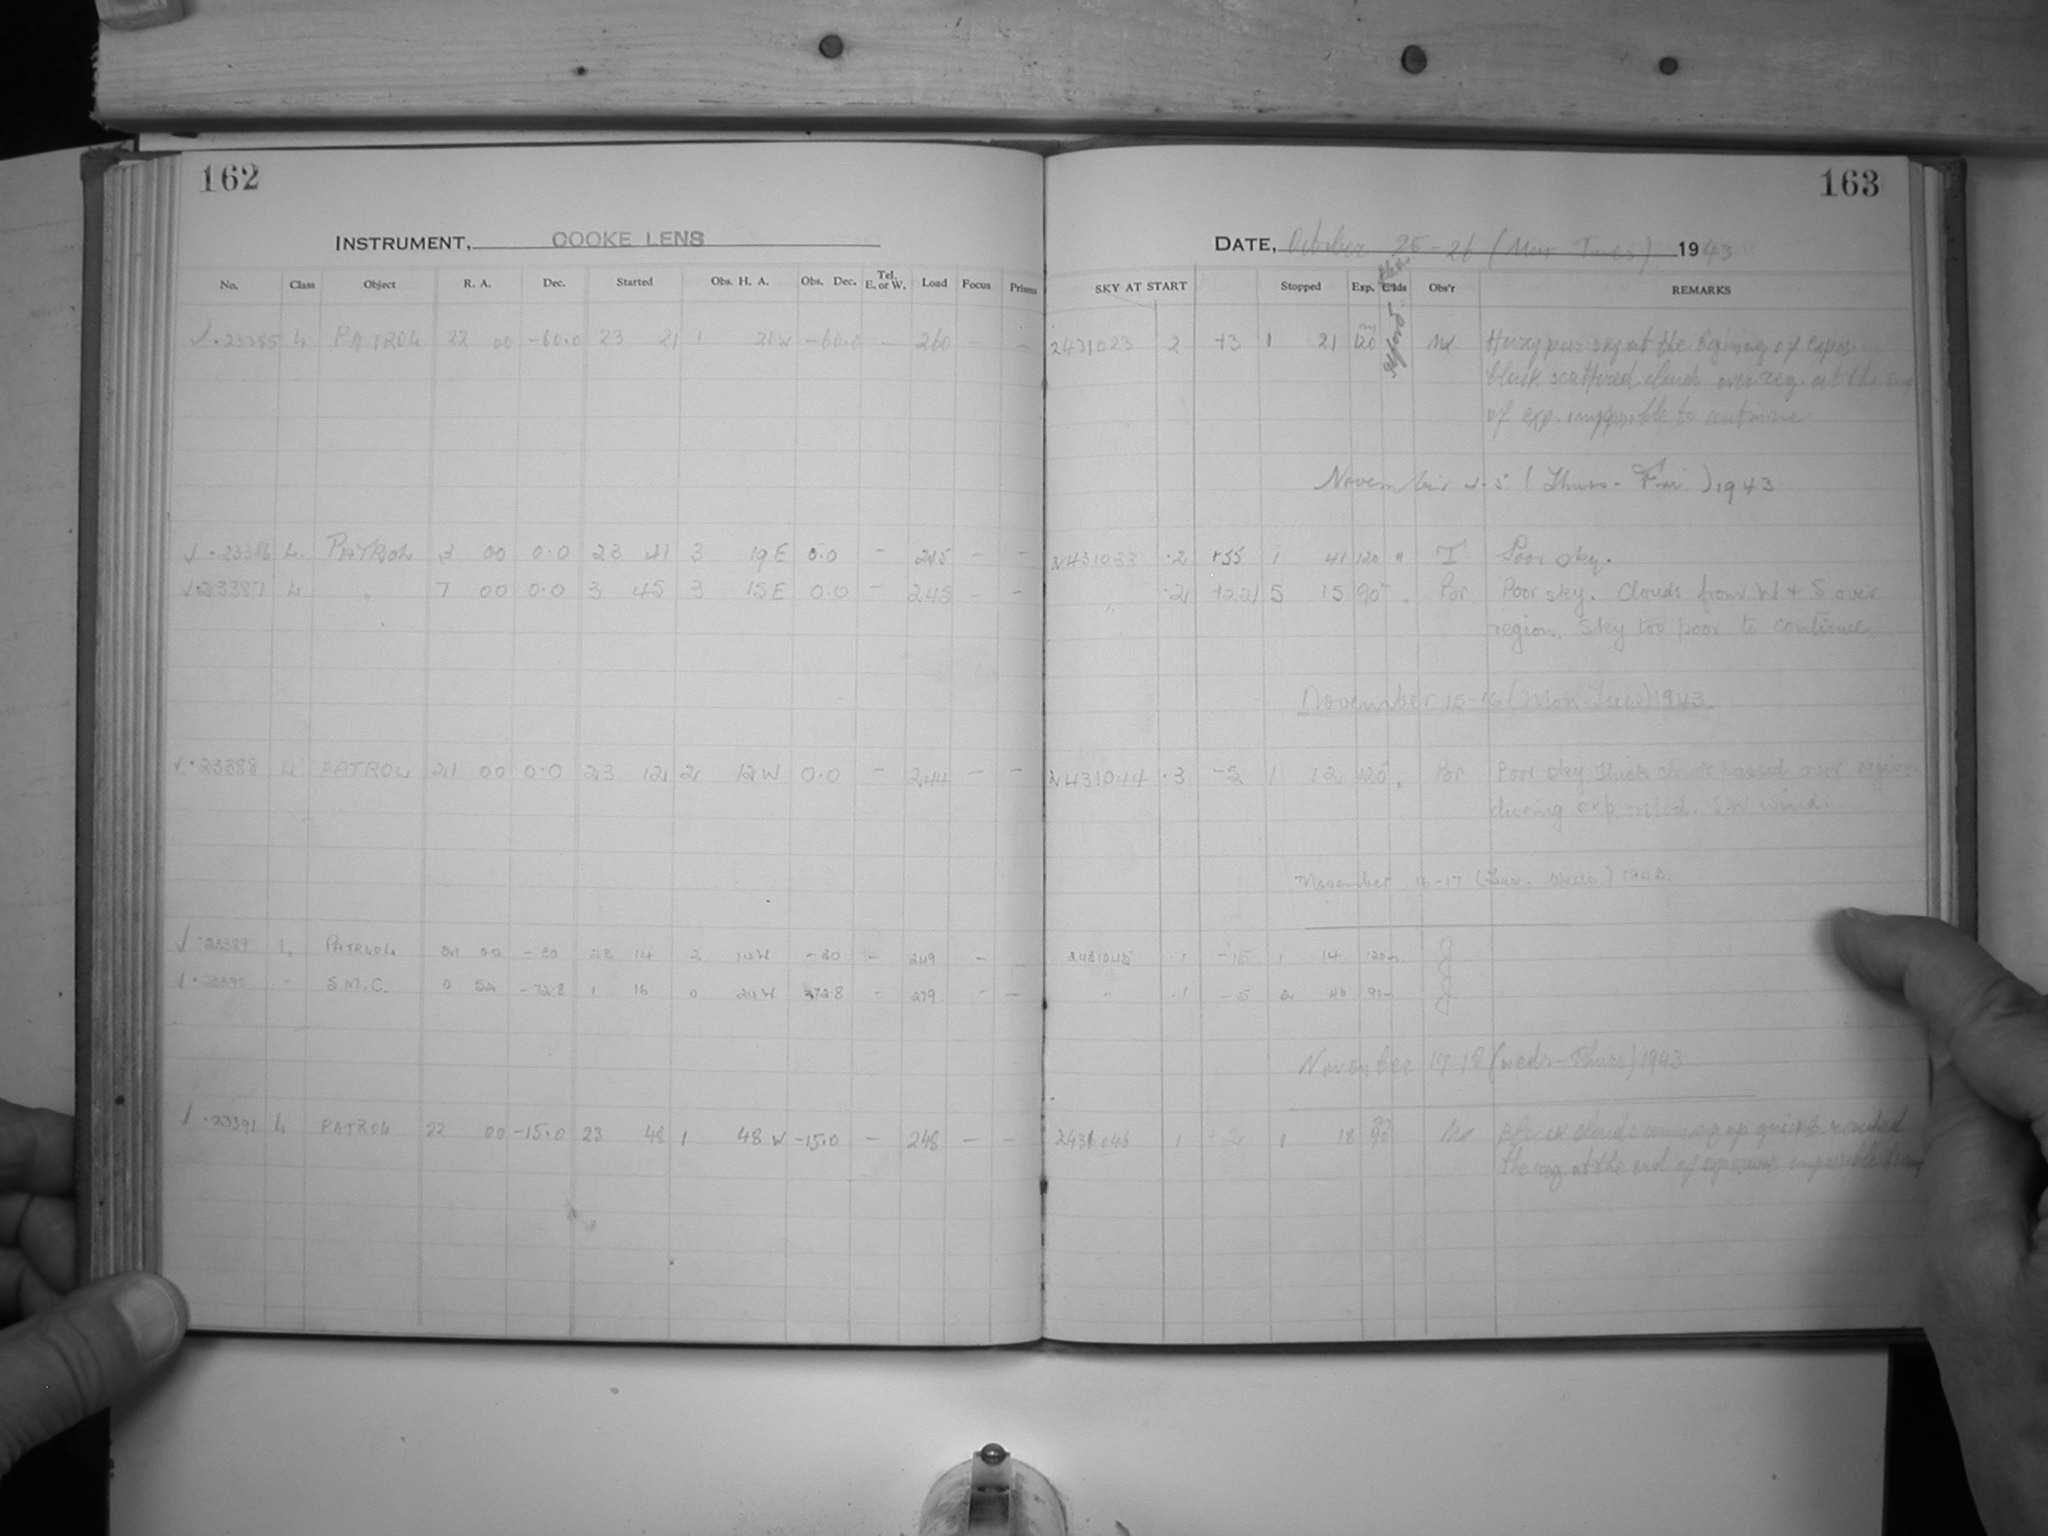 162
INSTRUMENT, COOKE LENS
No. Class Object R. A. Dec. Started Obs. H. A. Obs. Dec. Tel. E. or W. Load Focus Prisms
✓ · 23385 L PATROL 22 00 -60.0 23 21 1 21 W -60.0 – 260 – –
✓ · 23386 L. PATROL 3 00 0.0 23 41 3 19 E 0.0 – 245 – –
✓ · 23387 L " 7 00 0.0 3 45 3 15 E 0.0 – 245 – –
✓ · 23388 L PATROL 21 00 0.0 23 12 2 12 W 0.0 – 244 – –
✓ · 23389 L PATROL 21 00 -30 23 14 2 14 W -30 – 249 – –
✓ · 23390 – S.M.C. 0 52 -72.8 1 16 0 24 W -72.8 – 279 – –
✓ · 23391 L PATROL 22 00 -15.0 23 48 1 48 W -15.0 – 248 – –
163
DATE, October 25-26 (Mon Tues) 1943
SKY AT START Stopped Exp. Clds Obs'r REMARKS
2431023 2 +3 1 21 120 m Hazy poor sky at the begining of expos.
black scattered clouds over reg. at the end
of exp. impossible to continue
November 4-5 (Thurs - Fri) 1943
2431033 ·2 +55 1 41 120 " I Poor sky.
" ·2 +22 5 15 90 m " Bor Poor sky. Clouds from W + S over
region. Sky too poor to continue.
November 15-16 (Mon-Tues) 1943.
2431044 ·3 -2 1 12 120 m " Bor Poor sky thick clouds passed over region
during exp. Mod. S.W wind.
November 16-17 (Tues. Weds) 1943.
2431045 ·1 -15 1 14 120m J
" ·1 -5 2 46 90m J
November 17-18 (Weds - Thurs) 1943
2431046 1 1 18 90 m Black clouds coming up quickly reached
the reg. at the end of exposure impossible to